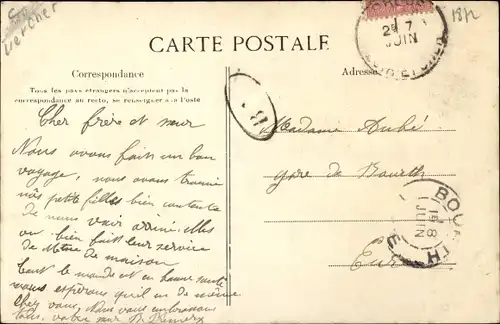 CARTE POSTALE
Correspondance
Tous les pays étrangers n'acceptent pas la
correspondance au recto, se renseigner à la Poste
Adresse
Cher frère et sœur
Nous avons fait un bon
voyage, nous avons trouvé
nos petites filles bien contente
de nous voir arrivé. Elles
on bien fait leur service
de Mtre de maison
tout le monde est en bonne santé
nous espérons qu'il en de même
chez vous, Nous vous embrassons
tous, votre sœur B.
B.
Madame Aubé
gare de Bourth
Eure
JUIN
BOURTH
JUIN
18/2